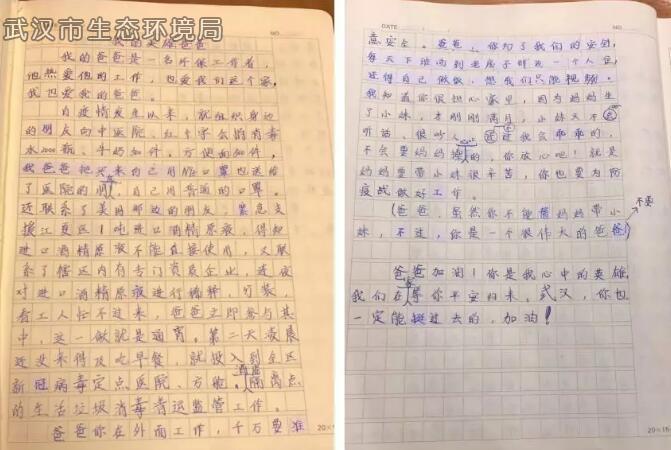 武汉市生态环境局
我的英雄爸爸
我的爸爸是一名环保工作者，
他热爱他的工作，也爱我们这个家，
我也爱我的爸爸。
自疫情发生以来，就组织身边
的朋友向中医院、红十字会捐消毒
水2000瓶、牛奶30件，方便面30件，
我爸爸把买来自己用的口罩也送给
了医院的 自己用普通的口罩。
还联系了美国那边的朋友，紧急支
援江夏区1吨进口酒精原液，得知
进口酒精原液不能直接使用，又联
系了辖区内有专门资质企业，连夜
对进口酒精原液进行稀释，分装，
看工人忙不过来，爸爸立即参与其
中，这一做就是通宵。第二天凌晨
还没来得及吃早餐，就投入到全区
新冠病毒定点医院、方舱、隔离点
的生活垃圾消毒清运监管工作。
爸爸你在外面工作，千万要注
20×
DATE
NO
意安全。爸爸，你为了我们的安全，
每天下班回到老房子那边一个人住，
还得自己做饭，想我们只能视频。
我知道你很担心家里，因为妈妈生
了小妹，才刚刚满月，小妹又不
听话，很吵人 我会乖乖的，
不会要妈妈 的，你放心吧！就是
妈妈要带小妹很辛苦，你也要为防
疫战做好工作。
（爸爸，虽然你不能 妈妈带小
妹，不过，你是一个很伟大的爸爸）
不要
爸爸加油！你是我心中的英雄，
我们在家等你平安归来，武汉，你也
一定能挺过去的，加油！
20×15